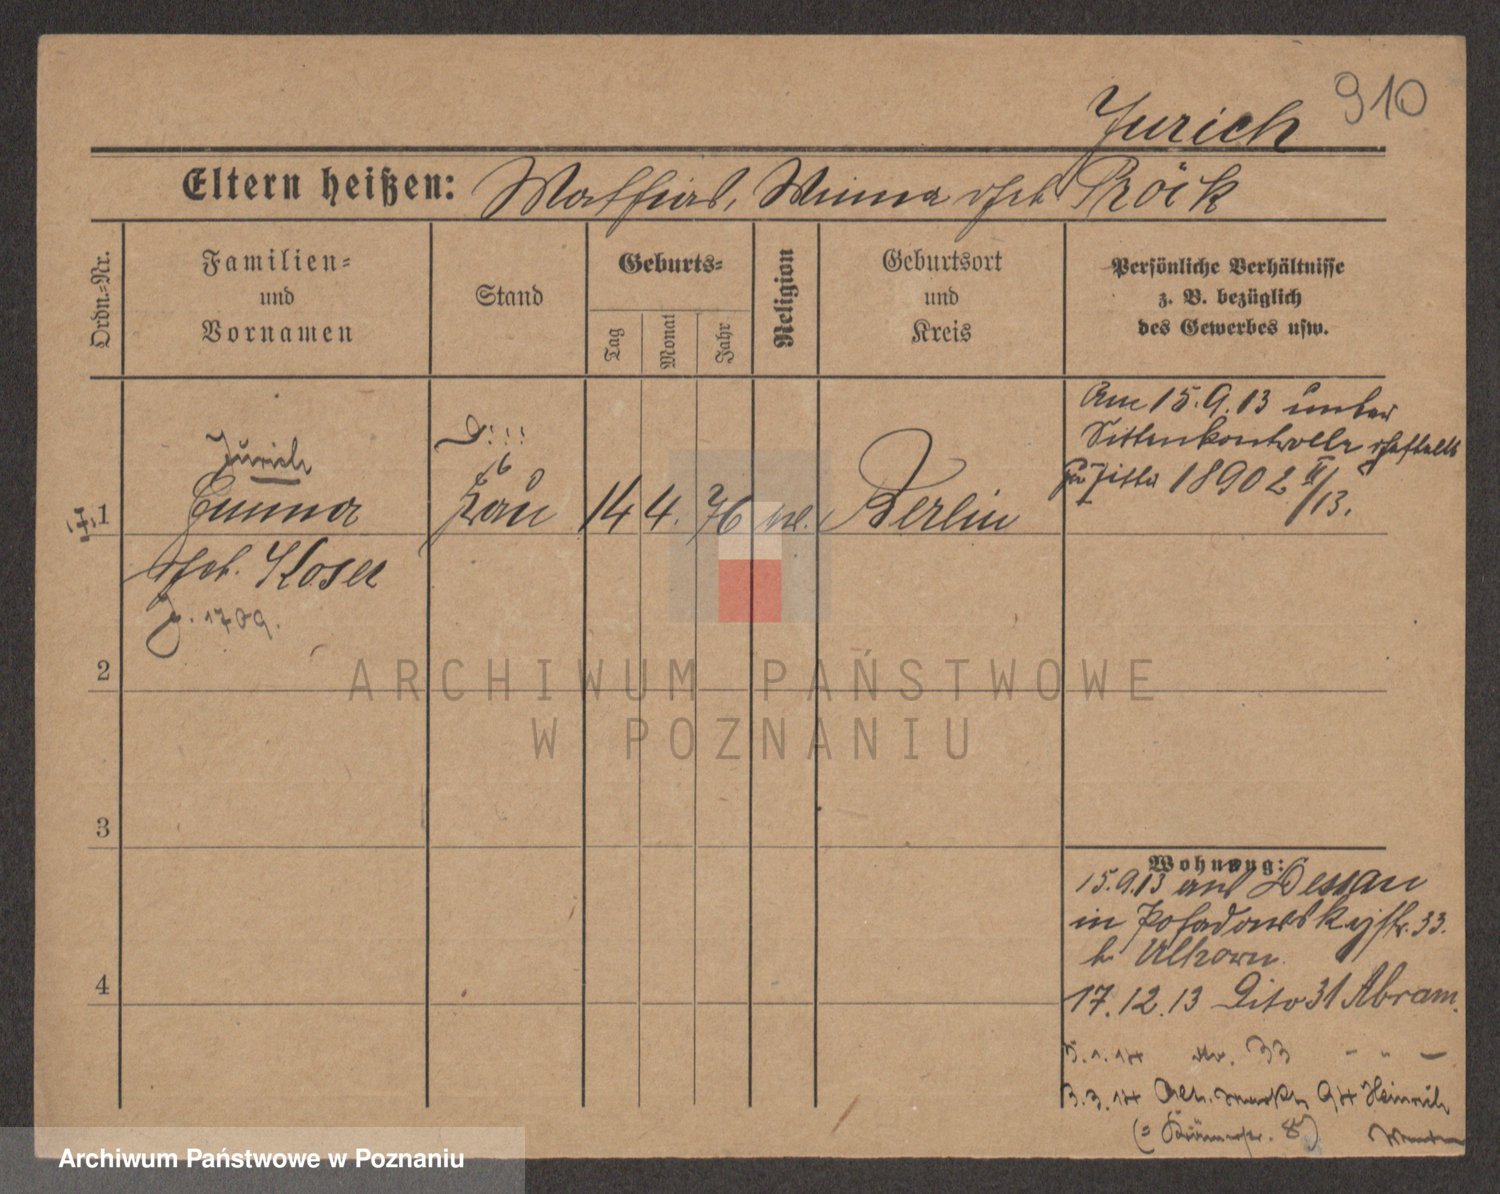 910
Jurich
Eltern heißen: Mathias, Minna geb. Röck
Ordn.-Nr.
Familien-
und
Vornamen
Stand
Geburts-
Tag
Monat
Jahr
Religion
Geburtsort
und
Kreis
Persönliche Verhältnisse
z. B. bezüglich
des Gewerbes usw.
Am 15.9.13 unter
Sittenkontrolle gestellt
1890 2 II/13.
Jurich
1 Emma 14 4. 76 Berlin
geb. Kosel
J. 1709.
2
3
4
Wohnung:
15.9.13 aus Dessau
in Posadowskystr. 33.
b. Ulhorn.
17.12.13 Dito 31 Abram.
5.1.14 33 " "
3.3.14 94 Heinrich
8
ARCHIWUM PAŃSTWOWE
W POZNANIU
Archiwum Państwowe w Poznaniu